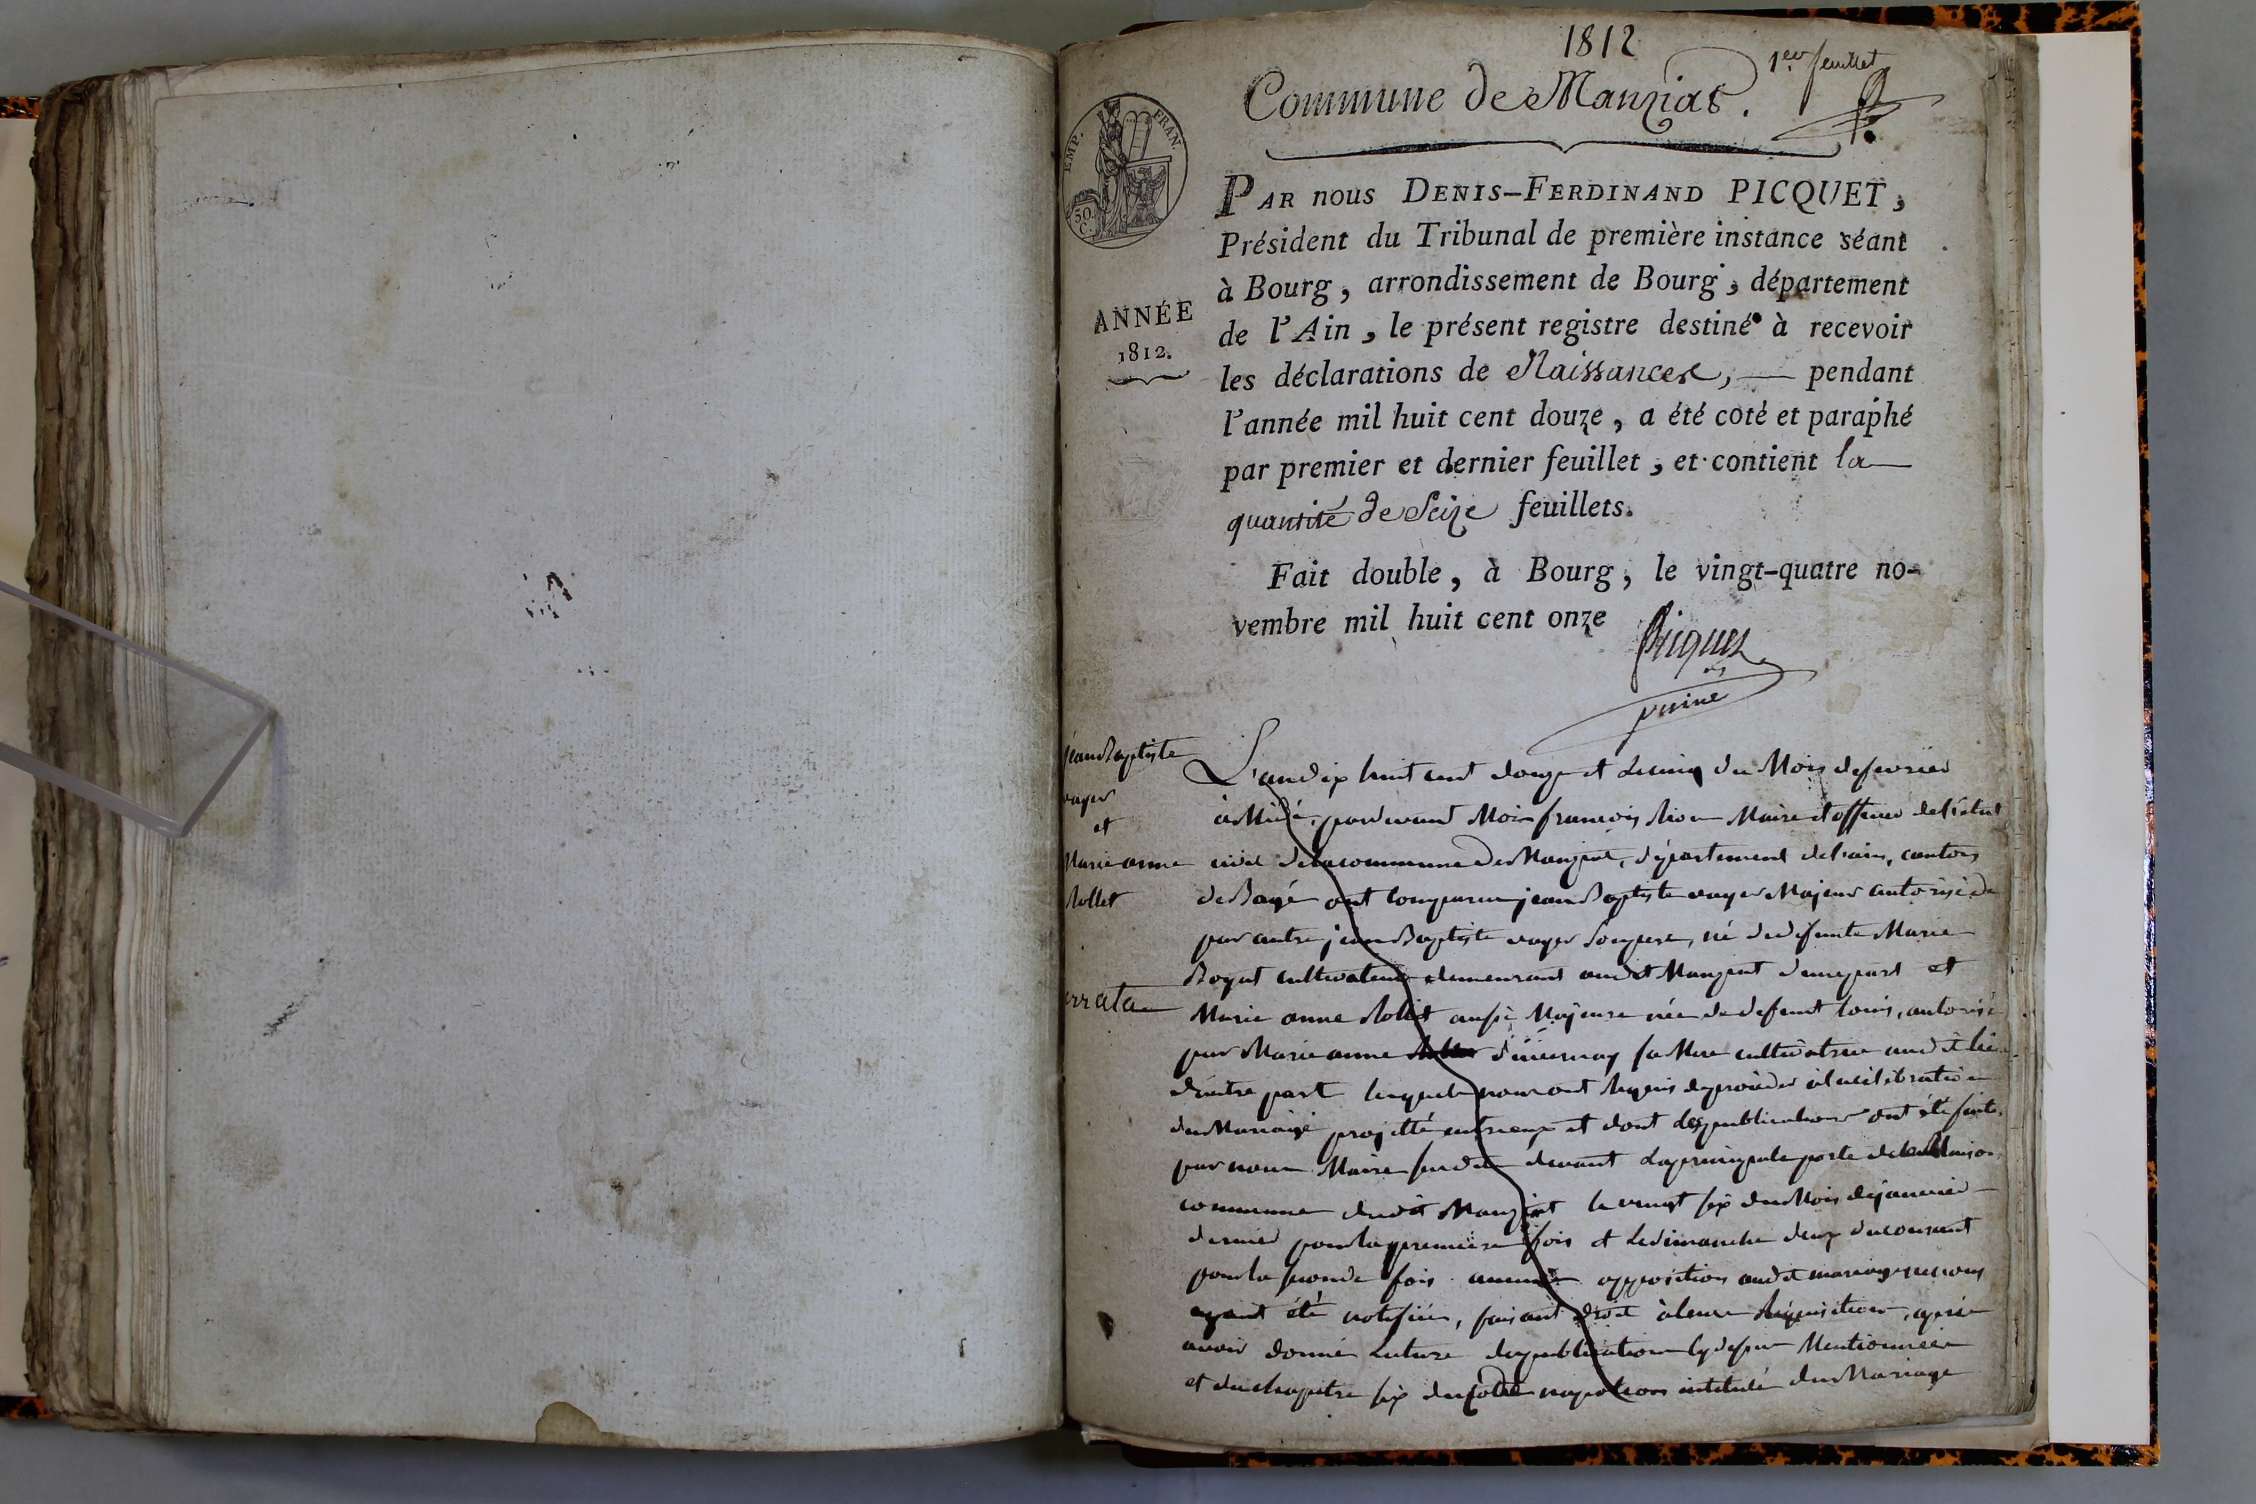 1812
1er feuillet
Commune de Manziat.
EMP. FRAN.
30.
C.
PAR nous DENIS-FERDINAND PICQUET,
Président du Tribunal de première instance séant
à Bourg, arrondissement de Bourg, département
ANNÉE
1812.
de l'Ain, le présent registre destiné à recevoir
les déclarations de Naissances, — pendant
l'année mil huit cent douze, a été coté et paraphé
par premier et dernier feuillet, et contient la
quantité de Seize feuillets.
Fait double, à Bourg, le vingt-quatre no-
vembre mil huit cent onze
Picquet
jean Baptiste
voyer
et
Marie anne
Rollet
errata
L'an dix huit cent douze et le cinq du Mois de fevrier
à Midi, pardevant Moi françois Maire et officier de l'état
civil de la commune de Manziat, département de l'ain, canton
de Bagé ont comparu jean Baptiste voyer Majeur autorisé
par autre jean Baptiste voyer son pere, né de defunte Marie
Boyat cultivateur demeurant audit Manziat d'une part et
Marie anne Rollet aussi Majeure née de defunt Louis, autorisé
par Marie anne sa Mere cultivatrice audit lieu
d'autre part lesquels nous ont requis de proceder à la celebration
du Mariage projetté entre eux et dont les publications ont été faites
par nous Maire susdit devant la principale porte de la Maison
commune dudit Manziat le vingt six du Mois de janvier
dernier pour la premiere fois et le dimanche deux du courant
pour la seconde fois aucune opposition audit mariage ne nous
ayant été notifiée, faisant droit à leur requisition, après
avoir donné lecture des publications cy dessus Mentionnées
et du chapitre six du code napoleon intitulé du Mariage